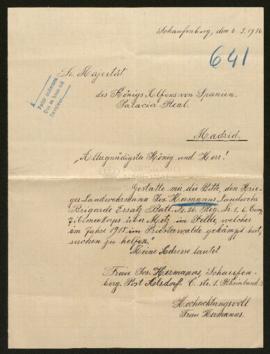 Scharfenberg, den 6.3.1916
641
Sr. Majestät
des Königs Alfons von Spanien.
Palacio Real.
Madrid.
Allergnädigste König und Herr!
Gestatte mir die Bitte, den Krie-
ger Landwehrmann Jos. Hermanns, Landwehr
Brigade Ersatz Batl. 
über Metz, in Stelle, welcher
im Jahre 1915 im Priesterwalde gekämpft hat,
suchen zu helfen.
Meine Adresse lautet
Frau Jos. Hermanns, Scharfen-
berg, Post
Hochachtungsvoll
Frau Hermanns.